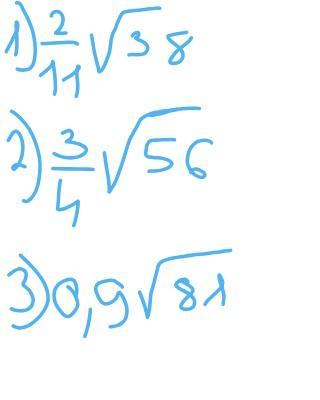 1) 2/11 √38
2) 3/4 √56
3) 0,9 √81